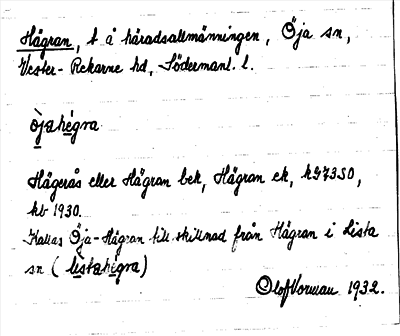 Hägran, t å häradsallmänningen, Öja sn,
Vester-Rekarne hd, Södermanl. l.
öjahègra
Hägerås eller Hägran bek, Hägran ek, kG73SO,
kb 1930.
Kallas Öja-Hägran till skillnad från Hägran i Lista
sn (listahigra)
Olof Vorman 1932.